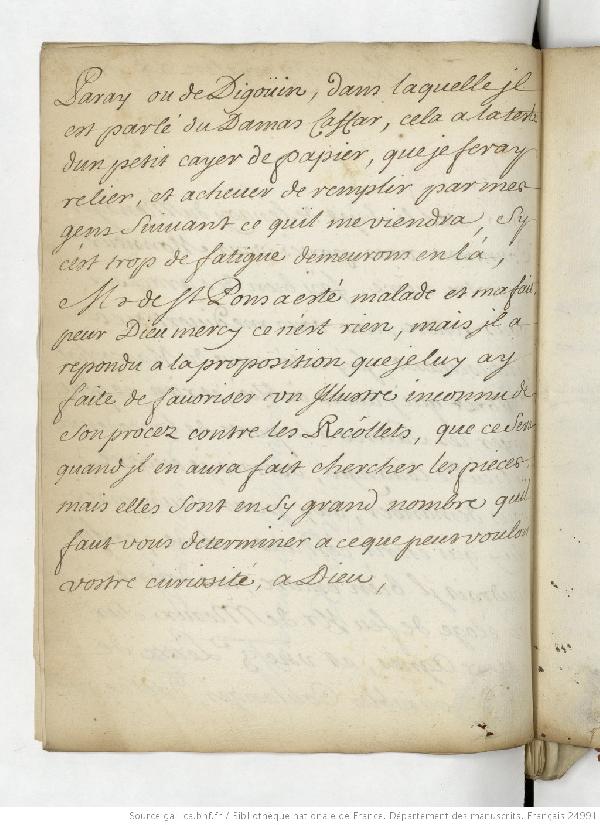 Paray ou de Digoüin, dans laquelle jl
est parlé du Damas Caffar, cela a la teste
dun petit cayer de papier, que je feray
relier, et acheuer de remplir par mes
gens suiuant ce quil me viendra, sy
c'est trop de fatigue demeurons en là,
Mr de St Pons a esté malade et ma fait
peur Dieu mercy ce n'est rien, mais jl a
repondu a la proposition que je luy ay
faite de fauoriser vn Jllustre inconnu de
son procez contre les Recollets, que ce sera
quand jl en aura fait chercher les pieces
mais elles sont en sy grand nombre quil
faut vous determiner a ce que peut vouloir
vostre curiosité, a Dieu,
Source gallica.bnf.fr / Bibliothèque nationale de France. Département des manuscrits. Français 24991